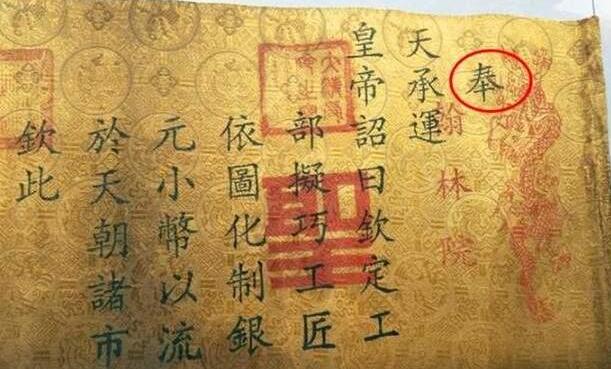 奉
翰林院
天承運
皇帝詔曰欽定工
部擬巧工匠
依圖化制銀
元小幣以流
於天朝諸市
欽此